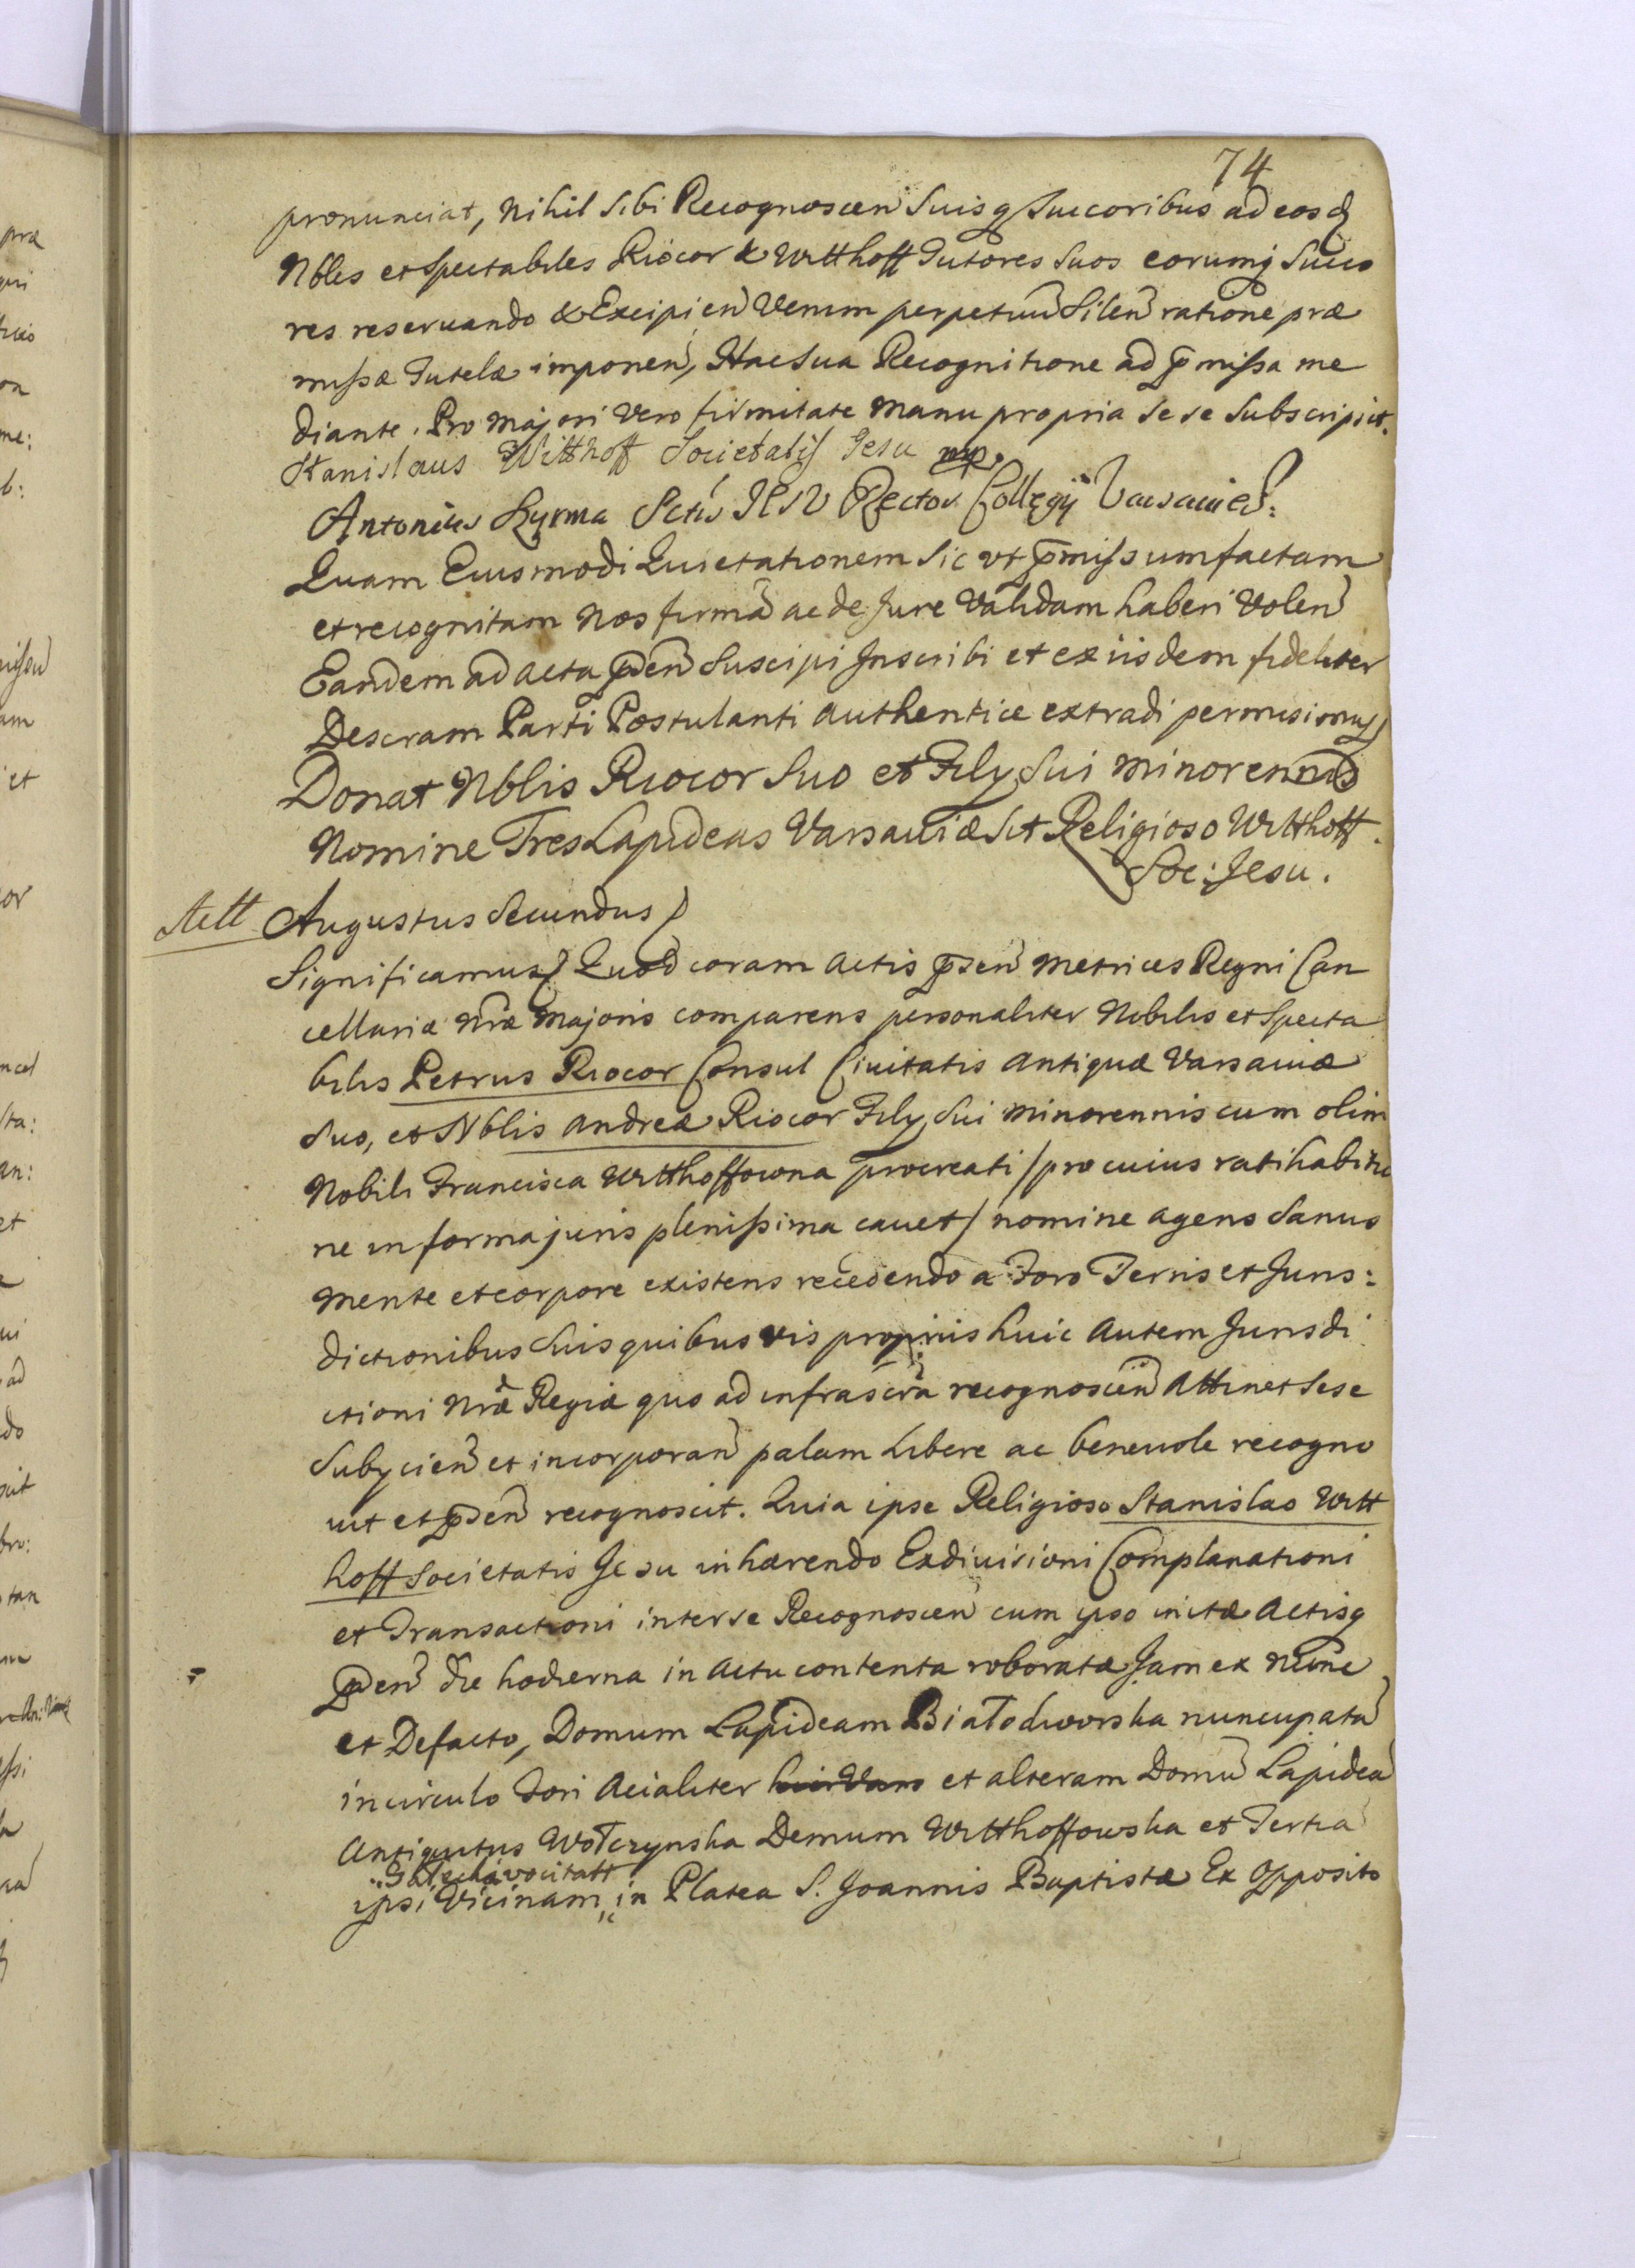 74
pronunciat, Nihil Sibi Recognoscen Suisq Succoribus ad eosq
Nbles et Spectabiles Riocor & Witthoff Tutores Suos eorumq Succo
res reseruando & Excipien Verum perpetuu Silen ratione præ
missæ Tutelæ imponen, Hac sua Recognitione ad pmissa me
diante. Pro Majori Vero firmitate Manu propria Se se Subscripsit.
Stanislaus Witthoff Societatis Jesu mp.
Antonius Lyrma Sctis Rector Collegij Varsauien:
Quam Eiusmodi Quietationem Sic vt pmissum factam
et recognitam Nos firma ac de Jure Validam haberi Volen
Eandem ad acta pden Suscipi Inscribi et ex iisdem fideliter
Descram Parti Postulanti authentice extradi permisimus
Donat Nblis Riocor Suo et Filij Sui Minorennis
Nomine Tres Lapideas Varsauiæ Sit Religioso Witthoff.
Soc: Jesu.
Augustus Secundus
Significamus Quod coram Actis psen Metrices Regni Can
cellariæ Nræ Majoris comparens personaliter Nobilis et Specta
bilis Petrus Riocor Consul Ciuitatis Antiquæ Varsauiæ
Suo, et Nblis Andreæ Riocor Filij Sui Minorennis cum olim
Nobili Francisca Witthoffowna procreati / pro cuius ratihabitio
ne in forma juris plenissima cauet / nomine agens Sanus
Mente et corpore existens recedendo a Foro Terris et Juris:
dictionibus Suis quibus vis proprijs huic Autem Jurisdi
ctioni Nræ Regiæ quo ad infrascra recognoscen Attinet Sese
Subijcien et incorporan palam Libere ac beneuole recogno
uit et pden recognoscit. Quia ipse Religioso Stanislao Witt
hoff Societatis Jesu inhærendo Exdiuisioni Complanationi
et Transactioni inter se Recognoscen cum ipso initæ Actisq
pden die hodierna in Actu contenta roboratæ Jam ex Nunc
et Defacto, Domum Lapideam Białodworska nuncupata
in circulo Fori Acialiter et alteram Domu Lapidea
Antiquitus Wołczynska Demum Witthoffowska et Tertia
vocitatt
ipsi Vicinam in Platea S. Joannis Baptistæ Ex Opposito